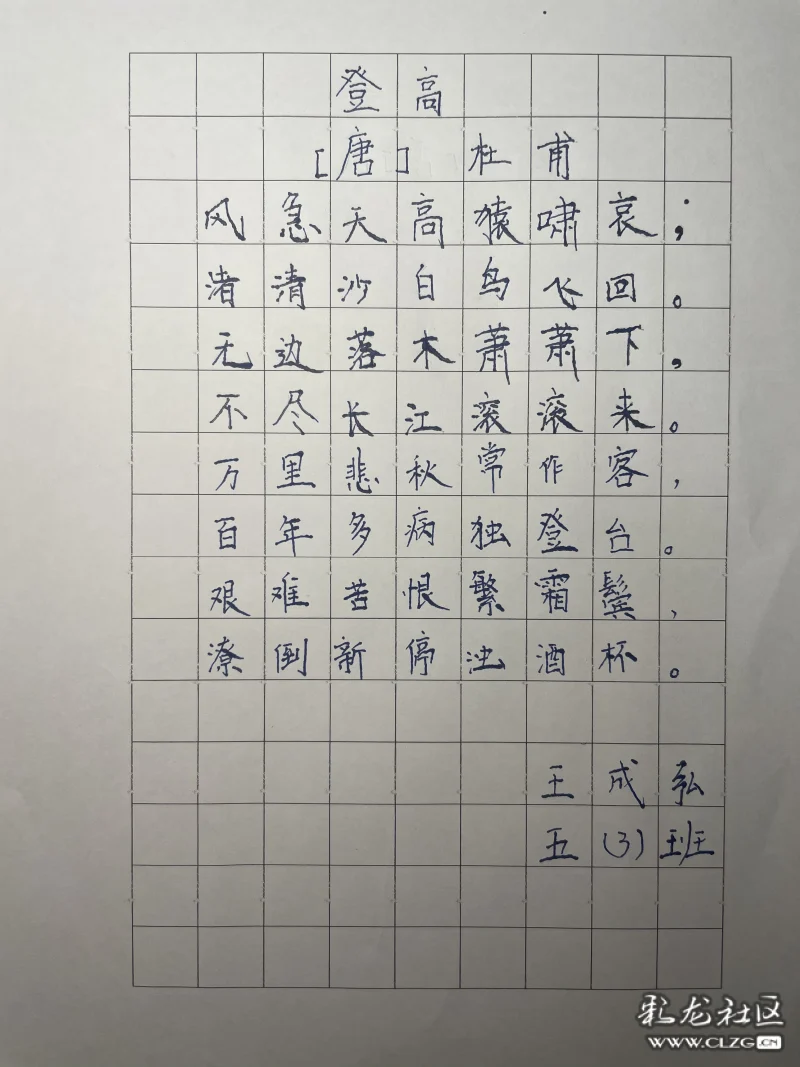 登高
[唐] 杜甫
风急天高猿啸哀；
渚清沙白鸟飞回。
无边落木萧萧下，
不尽长江滚滚来。
万里悲秋常作客，
百年多病独登台。
艰难苦恨繁霜鬓，
潦倒新停浊酒杯。
王成弘
五(3)班
彩龙社区
WWW.CLZG.CN